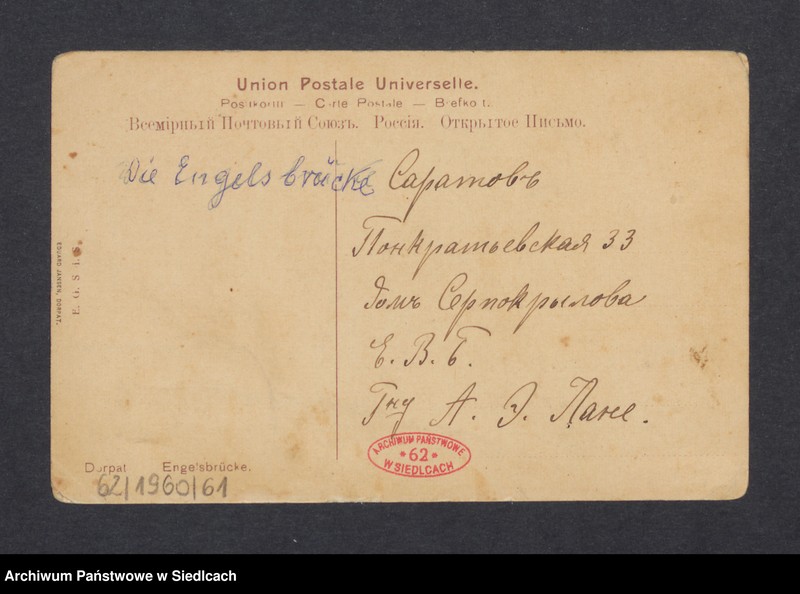 Union Postale Universelle.
Postkarte — Carte Postale — Briefkort.
Всемірный Почтовый Союзъ. Россія. Открытое Письмо.
Die Engelsbrücke
Саратовъ
Понкратьевская 33
домъ Серпокрылова
Е. В. Б.
Гну А. Э. Лане.
EDUARD JANSEN, DORPAT.
E. G. S. i. S.
ARCHIWUM PAŃSTWOWE
* 62 *
W SIEDLCACH
Dorpat Engelsbrücke.
62/1960/61
Archiwum Państwowe w Siedlcach